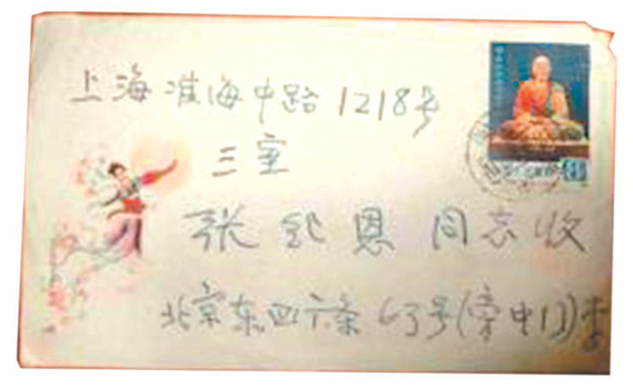 上海淮海中路1218号
三室
张钦恩同志收
北京东四六条63号(旁中门)李